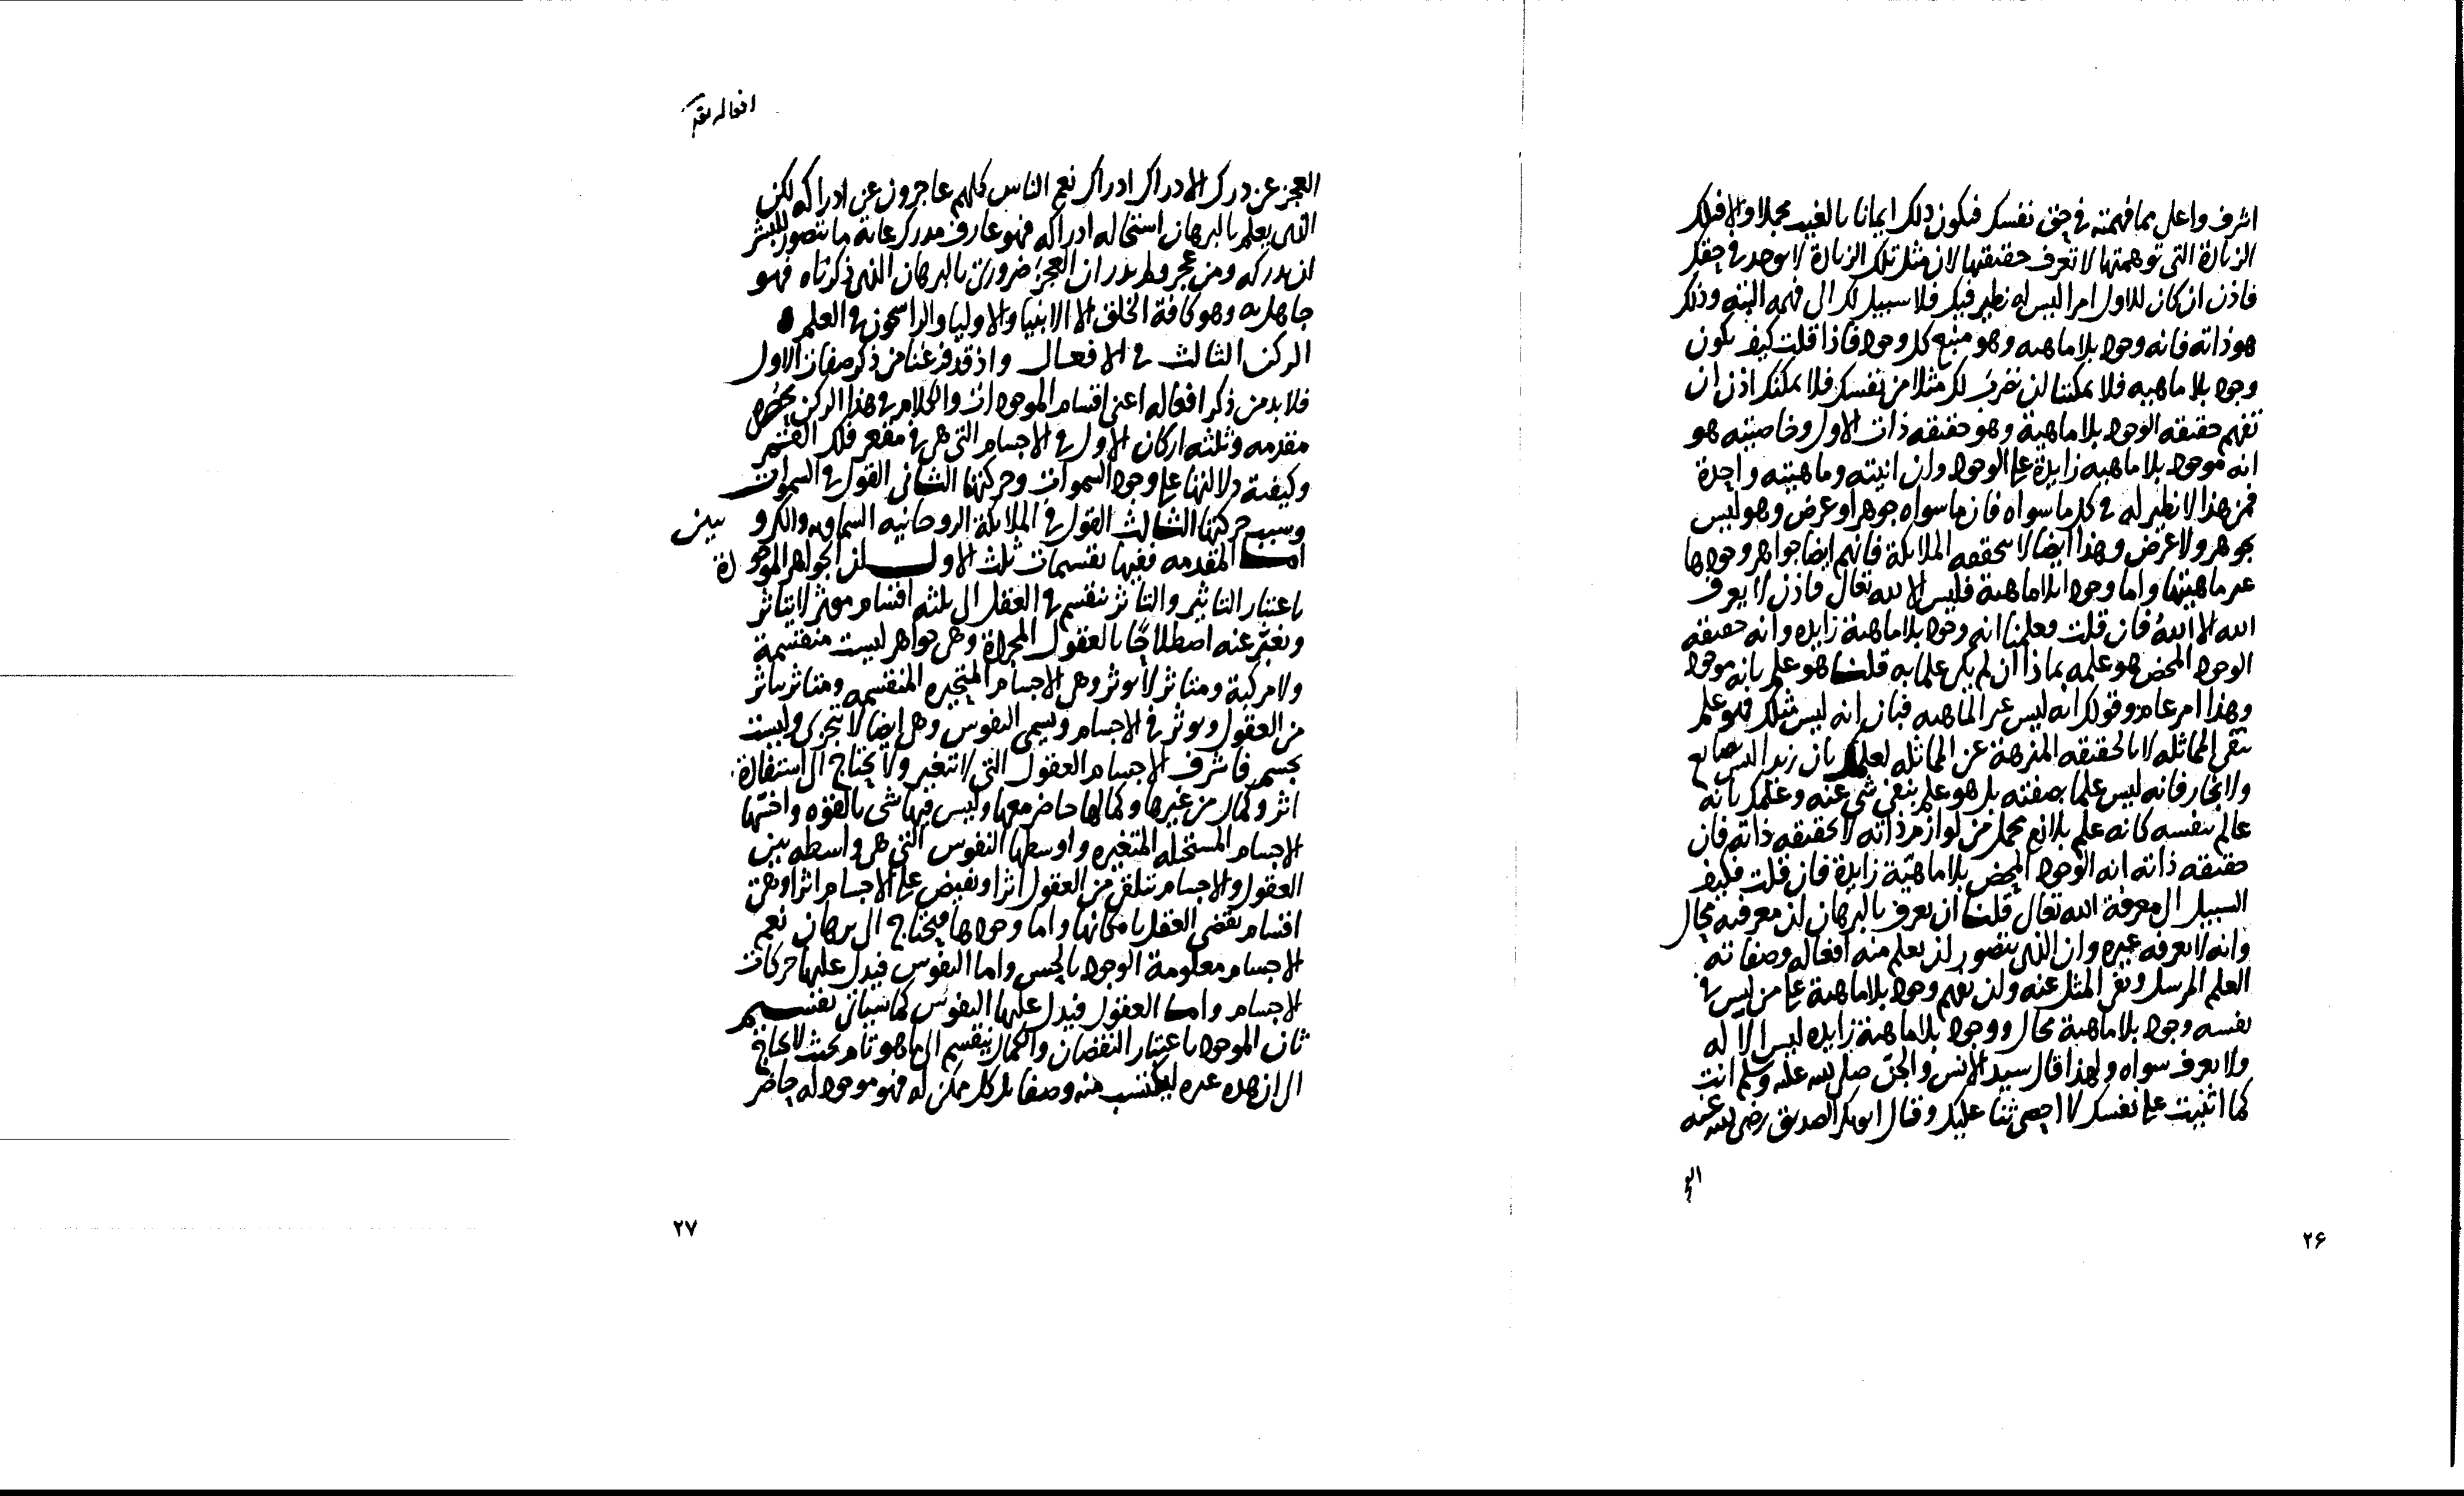 اشرف واعلى مما فهمته في حق نفسك فيكون ذلك ايمانا بالغيب مجملا والا فتلك
الزيادة التي توهمتها لا تعرف حقيقتها لان مثل تلك الزيادة لا يوجد في حقك
فاذن ان كان للاول امرا ليس له نظير فيك فلا سبيل لك الى فهمه البته وذلك
هو ذاته فانه وجود بلا ماهيه وهو منبع كل وجود فاذا قلت كيف يكون
وجود بلا ماهيه فلا يمكننا ان نضرب لك مثلا من نفسك فلا يمكنك اذن ان
تفهم حقيقه الوجود بلا ماهية وهو حقيقه ذات الاول وخاصيته هو
انه موجود بلا ماهيه زايدة على الوجود وان انيته وماهيته واحدة
فمن هذا لا نظير له في كل ما سواه فان ما سواه جوهر او عرض وهو ليس
بجوهر ولا عرض وهذا ايضا لا يحققه الملايكة فانهم ايضا جواهر وجودها
غير ماهيتها واما وجود بلا ماهية فليس الا لله تعالى فاذن لا يعرف
الله الا الله فان قلت فعلمنا انه وجود بلا ماهية زايده وانه حقيقه
الوجود المحض هو علمه بماذا ان لم يكن علما به قلنا هو علم بانه موجود
وهذا امر عام وقولك انه ليس غير الماهيه فبيان انه ليس مثلك فهو علم
بنفي المماثله لا بالحقيقه المنزهة عن المماثله لعلمك بان زيدا ليس بصايغ
ولا نجار فانه ليس علما بصفته بل هو علم بنفي شي عنه وعلمك بانه
عالم بنفسه كانه علم بلازم مجمل من لوازم ذاته لا بحقيقه ذاته فان
حقيقه ذاته انه الوجود المحض بلا ماهيّة زايدة فان قلت فكيف
السبيل الى معرفة الله تعالى قلنا ان يعرف بالبرهان ان معرفته محال
وانه لا يعرفه غيره وان الذي يتصور ان يعلم منه افعاله وصفاته
العلم المرسل ونفي المثل عنه وان يفهم وجود بلا ماهية على من ليس في
نفسه وجود بلا ماهية محال ووجود بلا ماهية زايده ليس الا له
ولا يعرف سواه ولهذا قال سيد الانس والجن صلى الله عليه وسلم انت
كما اثنيت على نفسك لا احصي ثنا عليك وقال ابو بكر الصديق رضي الله عنه
٢۶
العجز عن درك الادراك ادراك نعم الناس كلهم عاجزون عن ادراكه لكن
الذي يعلم بالبرهان استحاله ادراكه فهو عارف مدرك غاية ما يتصور للبشر
ان يدركه ومن عجز ولم يدر ان العجز ضروري بالبرهان الذي ذكرناه فهو
جاهل به وهو كافة الخلق الا الانبيا والاوليا والراسخون في العلم
الركن الثالث في الافعال واذ قد فرغنا من ذكر صفات الاول
فلا بد من ذكر افعاله اعني اقسام الموجودات والكلام في هذا الركن يحصره
مقدمه وثلثه اركان الاول في الاجسام التي هي في مقعر فلك القمر
وكيفية دلالتها على وجود السموات وحركتها الثاني القول في السموات
وسبب حركتها الثالث القول في الملايكة الروحانيه السماويه والكروبيين
اما المقدمه ففيها تقسيمات ثلث الاول ان الجواهر الموجودة
باعتبار التاثير والتاثر تنقسم في العقل الى ثلثه اقسام موثر لا يتاثر
ونعبّر عنه اصطلاحًا بالعقول المجردة وهي جواهر ليست منقسمة
ولا مركبة ومتاثر لا يوثر وهي الاجسام المتحيزه المنقسمه ومتاثر يتاثر
من العقول ويوثر في الاجسام ويسمى النفوس وهي ايضا لا تتجزى وليست
بجسم فاشرف الاجسام العقول التي لا تتغير ولا تحتاج الى استفادة
اثر وكمال من غيرها وكمالها حاضر معها وليس فيها شي بالقوه واخسّها
الاجسام المستحيله المتغيره واوسطها النفوس التي هي واسطه بين
العقول والاجسام تتلقى من العقول اثرا وتفيض على الاجسام اثرا وهذه
اقسام يقضي العقل بامكانها واما وجودها فيحتاج الى برهان نعم
الاجسام معلومة الوجود بالحس واما النفوس فيدل عليها حركات
الاجسام واما العقول فيدل عليها النفوس كما سياتي تقسيم
ثان الموجود باعتبار النقصان والكمال ينقسم الى ما هو تام بحيث لا يحتاج
الى ان يمده غيره ليكتسب منه وصفا بل كل ممكن له فهو موجود له حاضر
٢٧